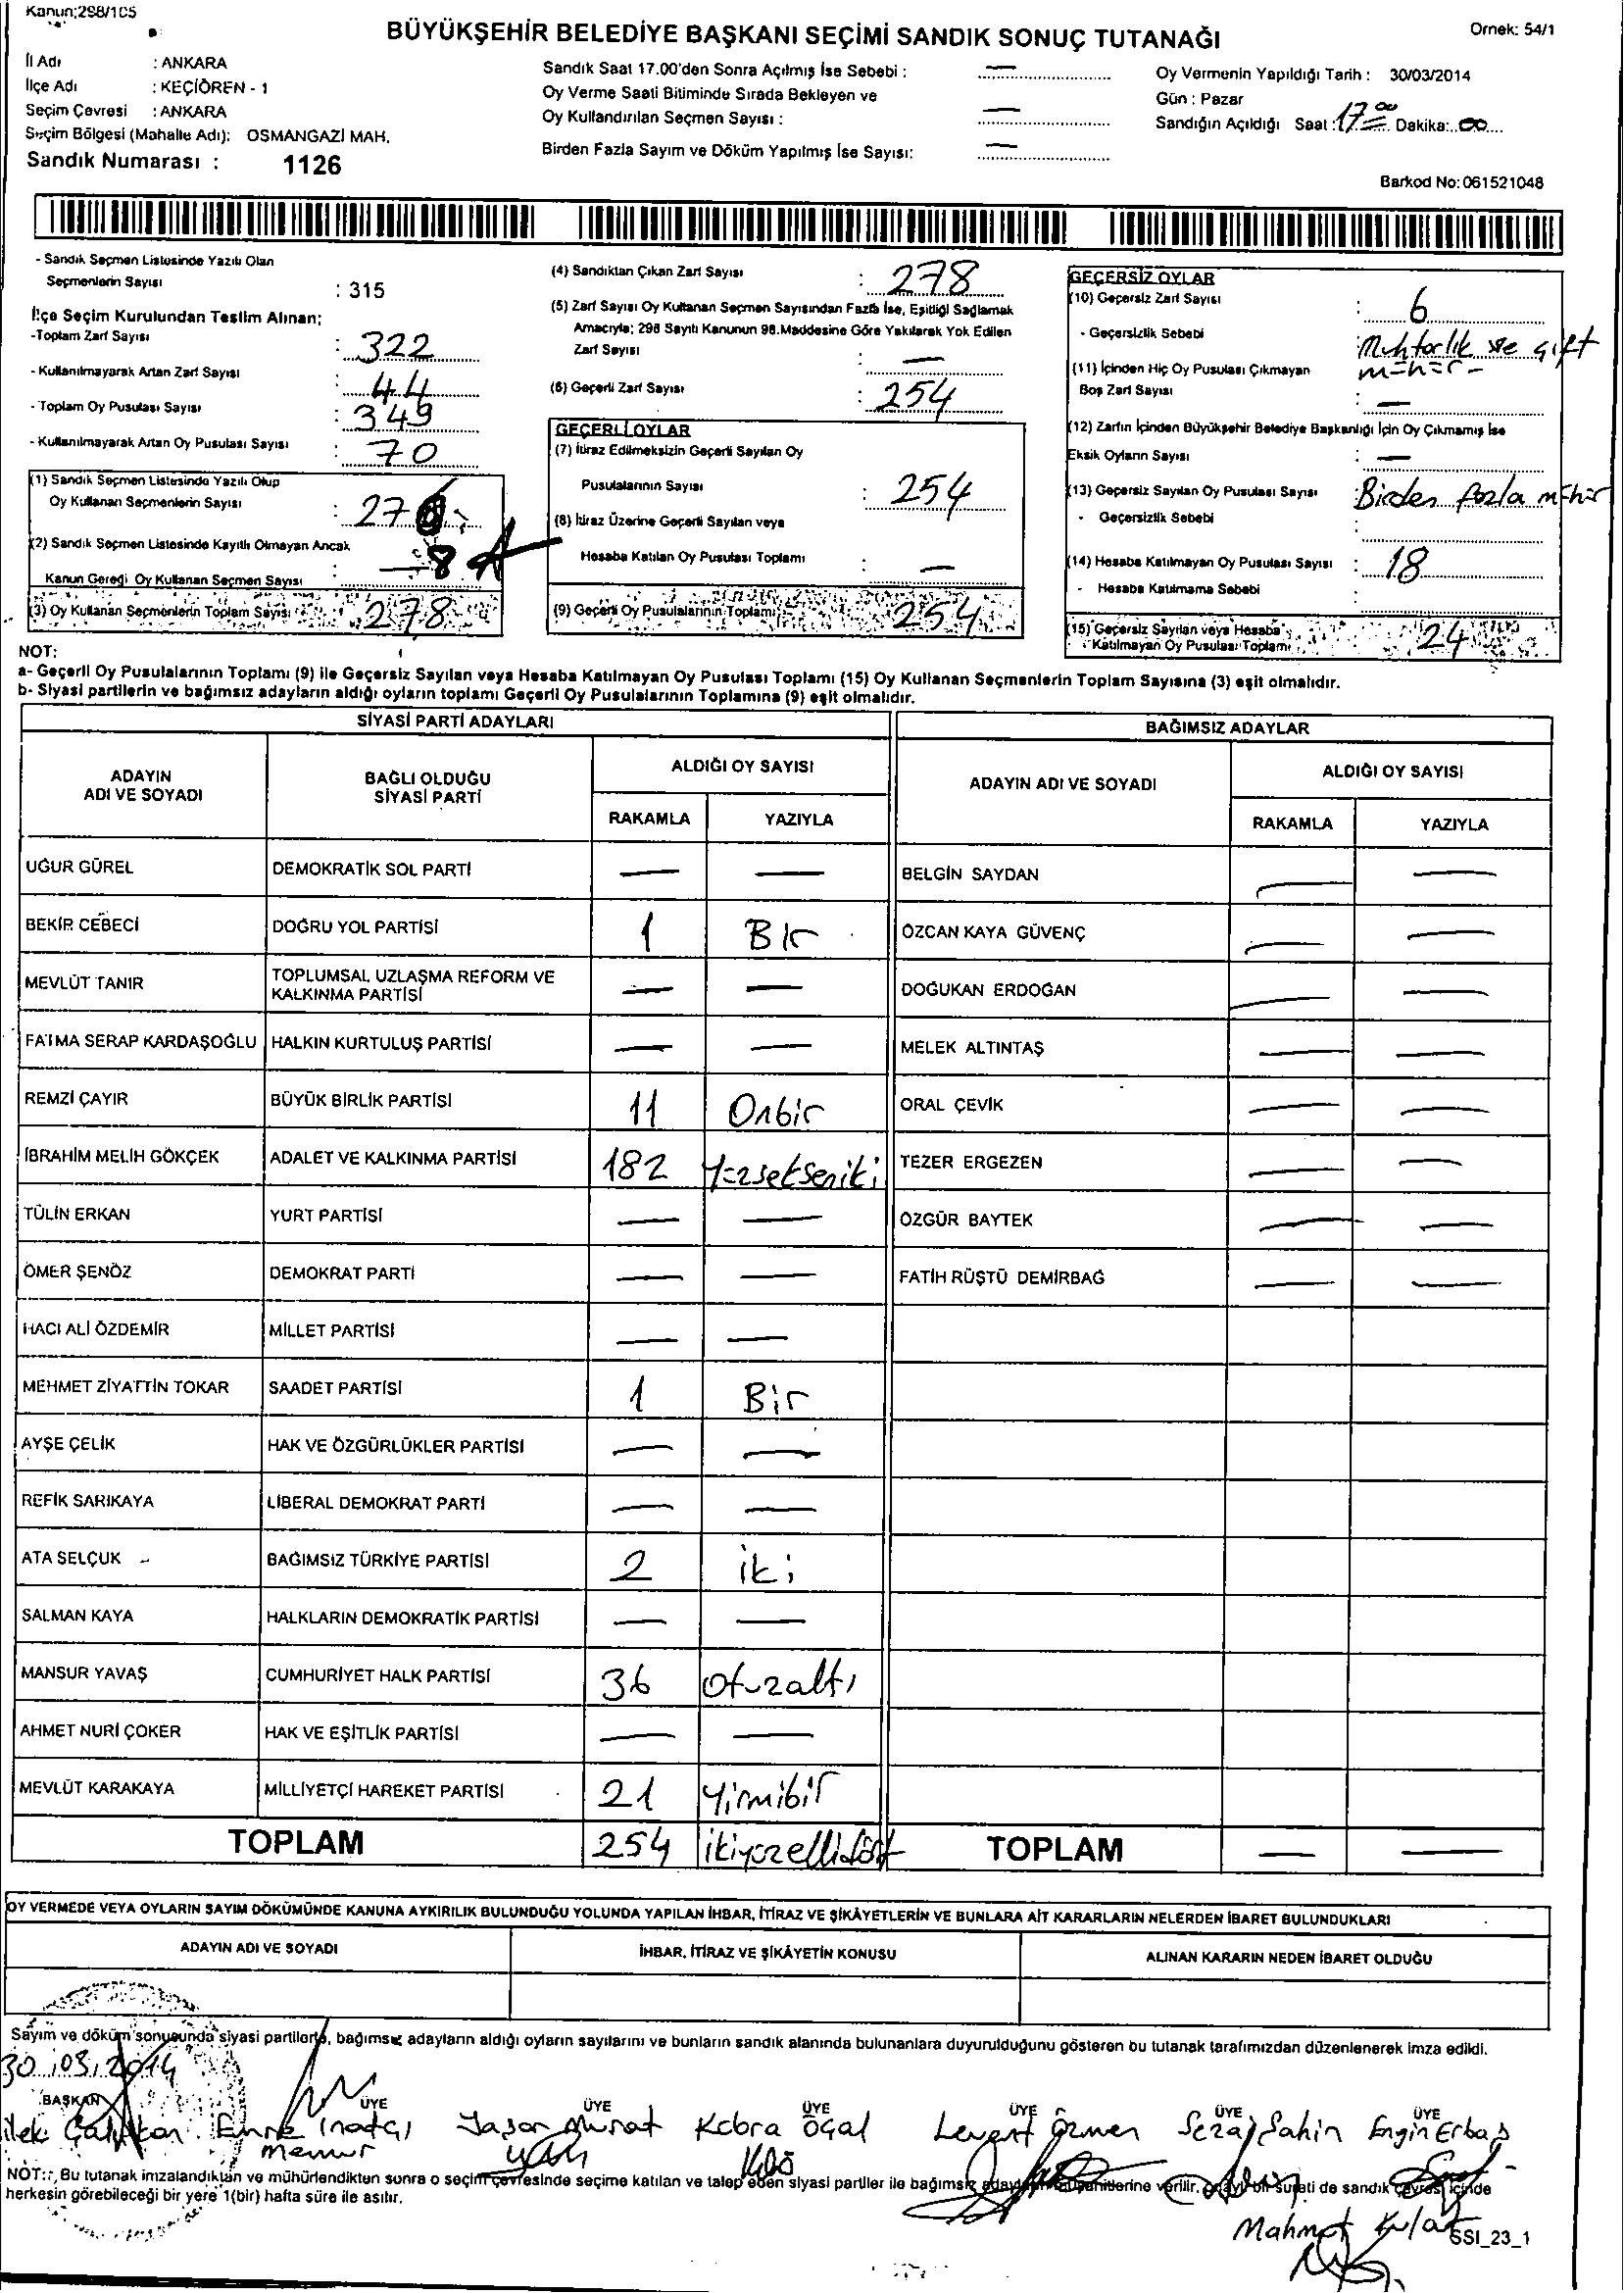 Kanun;298/105
BÜYÜKŞEHİR BELEDİYE BAŞKANI SEÇİMİ SANDIK SONUÇ TUTANAĞI
Örnek: 54/1
İl Adı : ANKARA
İlçe Adı : KEÇİÖREN - 1
Seçim Çevresi : ANKARA
Seçim Bölgesi (Mahalle Adı): OSMANGAZİ MAH.
Sandık Numarası : 1126
Sandık Saat 17.00'den Sonra Açılmış İse Sebebi : —
Oy Verme Saati Bitiminde Sırada Bekleyen ve
Oy Kullandırılan Seçmen Sayısı : —
Birden Fazla Sayım ve Döküm Yapılmış İse Sayısı: —
Oy Vermenin Yapıldığı Tarih : 30/03/2014
Gün : Pazar
Sandığın Açıldığı Saat : 17 00 Dakika: 00
Barkod No: 061521048
- Sandık Seçmen Listesinde Yazılı Olan
Seçmenlerin Sayısı : 315
İlçe Seçim Kurulundan Teslim Alınan;
-Toplam Zarf Sayısı : 322
- Kullanılmayarak Artan Zarf Sayısı : 44
- Toplam Oy Pusulası Sayısı : 349
- Kullanılmayarak Artan Oy Pusulası Sayısı : 70
(1) Sandık Seçmen Listesinde Yazılı Olup
Oy Kullanan Seçmenlerin Sayısı :
(2) Sandık Seçmen Listesinde Kayıtlı Olmayan Ancak
Kanun Gereği Oy Kullanan Seçmen Sayısı :
(3) Oy Kullanan Seçmenlerin Toplam Sayısı : 278
(4) Sandıktan Çıkan Zarf Sayısı : 278
(5) Zarf Sayısı Oy Kullanan Seçmen Sayısından Fazla İse, Eşitliği Sağlamak
Amacıyla; 298 Sayılı Kanunun 98.Maddesine Göre Yakılarak Yok Edilen
Zarf Sayısı : —
(6) Geçerli Zarf Sayısı : 254
GEÇERLİ OYLAR
(7) İtiraz Edilmeksizin Geçerli Sayılan Oy
Pusulalarının Sayısı : 254
(8) İtiraz Üzerine Geçerli Sayılan veya
Hesaba Katılan Oy Pusulası Toplamı : —
(9) Geçerli Oy Pusulalarının Toplamı : 254
GEÇERSİZ OYLAR
(10) Geçersiz Zarf Sayısı : 6
- Geçersizlik Sebebi : Muhtarlık ve çift
mühür
(11) İçinden Hiç Oy Pusulası Çıkmayan
Boş Zarf Sayısı : —
(12) Zarfın İçinden Büyükşehir Belediye Başkanlığı İçin Oy Çıkmamış İse
Eksik Oyların Sayısı : —
(13) Geçersiz Sayılan Oy Pusulası Sayısı : Birden fazla mühür
- Geçersizlik Sebebi :
(14) Hesaba Katılmayan Oy Pusulası Sayısı : 18
- Hesaba Katılmama Sebebi :
(15) Geçersiz Sayılan veya Hesaba
Katılmayan Oy Pusulası Toplamı : 24
NOT:
a- Geçerli Oy Pusulalarının Toplamı (9) ile Geçersiz Sayılan veya Hesaba Katılmayan Oy Pusulası Toplamı (15) Oy Kullanan Seçmenlerin Toplam Sayısına (3) eşit olmalıdır.
b- Siyasi partilerin ve bağımsız adayların aldığı oyların toplamı Geçerli Oy Pusulalarının Toplamına (9) eşit olmalıdır.
SİYASİ PARTİ ADAYLARI
ADAYIN ADI VE SOYADI BAĞLI OLDUĞU SİYASİ PARTİ ALDIĞI OY SAYISI
RAKAMLA YAZIYLA
UĞUR GÜREL DEMOKRATİK SOL PARTİ — —
BEKİR CEBECİ DOĞRU YOL PARTİSİ 1 Bir
MEVLÜT TANIR TOPLUMSAL UZLAŞMA REFORM VE KALKINMA PARTİSİ — —
FATMA SERAP KARDAŞOĞLU HALKIN KURTULUŞ PARTİSİ — —
REMZİ ÇAYIR BÜYÜK BİRLİK PARTİSİ 11 Onbir
İBRAHİM MELİH GÖKÇEK ADALET VE KALKINMA PARTİSİ 182 Yüzsekseniki
TÜLİN ERKAN YURT PARTİSİ — —
ÖMER ŞENÖZ DEMOKRAT PARTİ — —
HACI ALİ ÖZDEMİR MİLLET PARTİSİ — —
MEHMET ZİYATTİN TOKAR SAADET PARTİSİ 1 Bir
AYŞE ÇELİK HAK VE ÖZGÜRLÜKLER PARTİSİ — —
REFİK SARIKAYA LİBERAL DEMOKRAT PARTİ — —
ATA SELÇUK BAĞIMSIZ TÜRKİYE PARTİSİ 2 iki
SALMAN KAYA HALKLARIN DEMOKRATİK PARTİSİ — —
MANSUR YAVAŞ CUMHURİYET HALK PARTİSİ 36 Otuzaltı
AHMET NURİ ÇOKER HAK VE EŞİTLİK PARTİSİ — —
MEVLÜT KARAKAYA MİLLİYETÇİ HAREKET PARTİSİ 21 Yirmibir
TOPLAM 254 ikiyüzellidört
BAĞIMSIZ ADAYLAR
ADAYIN ADI VE SOYADI ALDIĞI OY SAYISI
RAKAMLA YAZIYLA
BELGİN SAYDAN — —
ÖZCAN KAYA GÜVENÇ — —
DOĞUKAN ERDOĞAN — —
MELEK ALTINTAŞ — —
ORAL ÇEVİK — —
TEZER ERGEZEN — —
ÖZGÜR BAYTEK — —
FATİH RÜŞTÜ DEMİRBAĞ — —
TOPLAM — —
OY VERMEDE VEYA OYLARIN SAYIM DÖKÜMÜNDE KANUNA AYKIRILIK BULUNDUĞU YOLUNDA YAPILAN İHBAR, İTİRAZ VE ŞİKÂYETLERİN VE BUNLARA AİT KARARLARIN NELERDEN İBARET BULUNDUKLARI
ADAYIN ADI VE SOYADI İHBAR, İTİRAZ VE ŞİKÂYETİN KONUSU ALINAN KARARIN NEDEN İBARET OLDUĞU
Sayım ve döküm sonucunda siyasi partilerle, bağımsız adayların aldığı oyların sayılarını ve bunların sandık alanında bulunanlara duyurulduğunu gösteren bu tutanak tarafımızdan düzenlenerek imza edildi.
30.03.2014
BAŞKAN ÜYE ÜYE ÜYE ÜYE ÜYE ÜYE
Emre İnatçı Yaşar Murat Kübra Öçal Levent Özmen Sezai Şahin Engin Erbaş
Memur
NOT:: Bu tutanak imzalandıktan ve mühürlendikten sonra o seçim çevresinde seçime katılan ve talep eden siyasi partiler ile bağımsız verilir, sureti de sandık çevresi içinde
herkesin görebileceği bir yere 1(bir) hafta süre ile asılır.
Mahmut
SSI_23_1